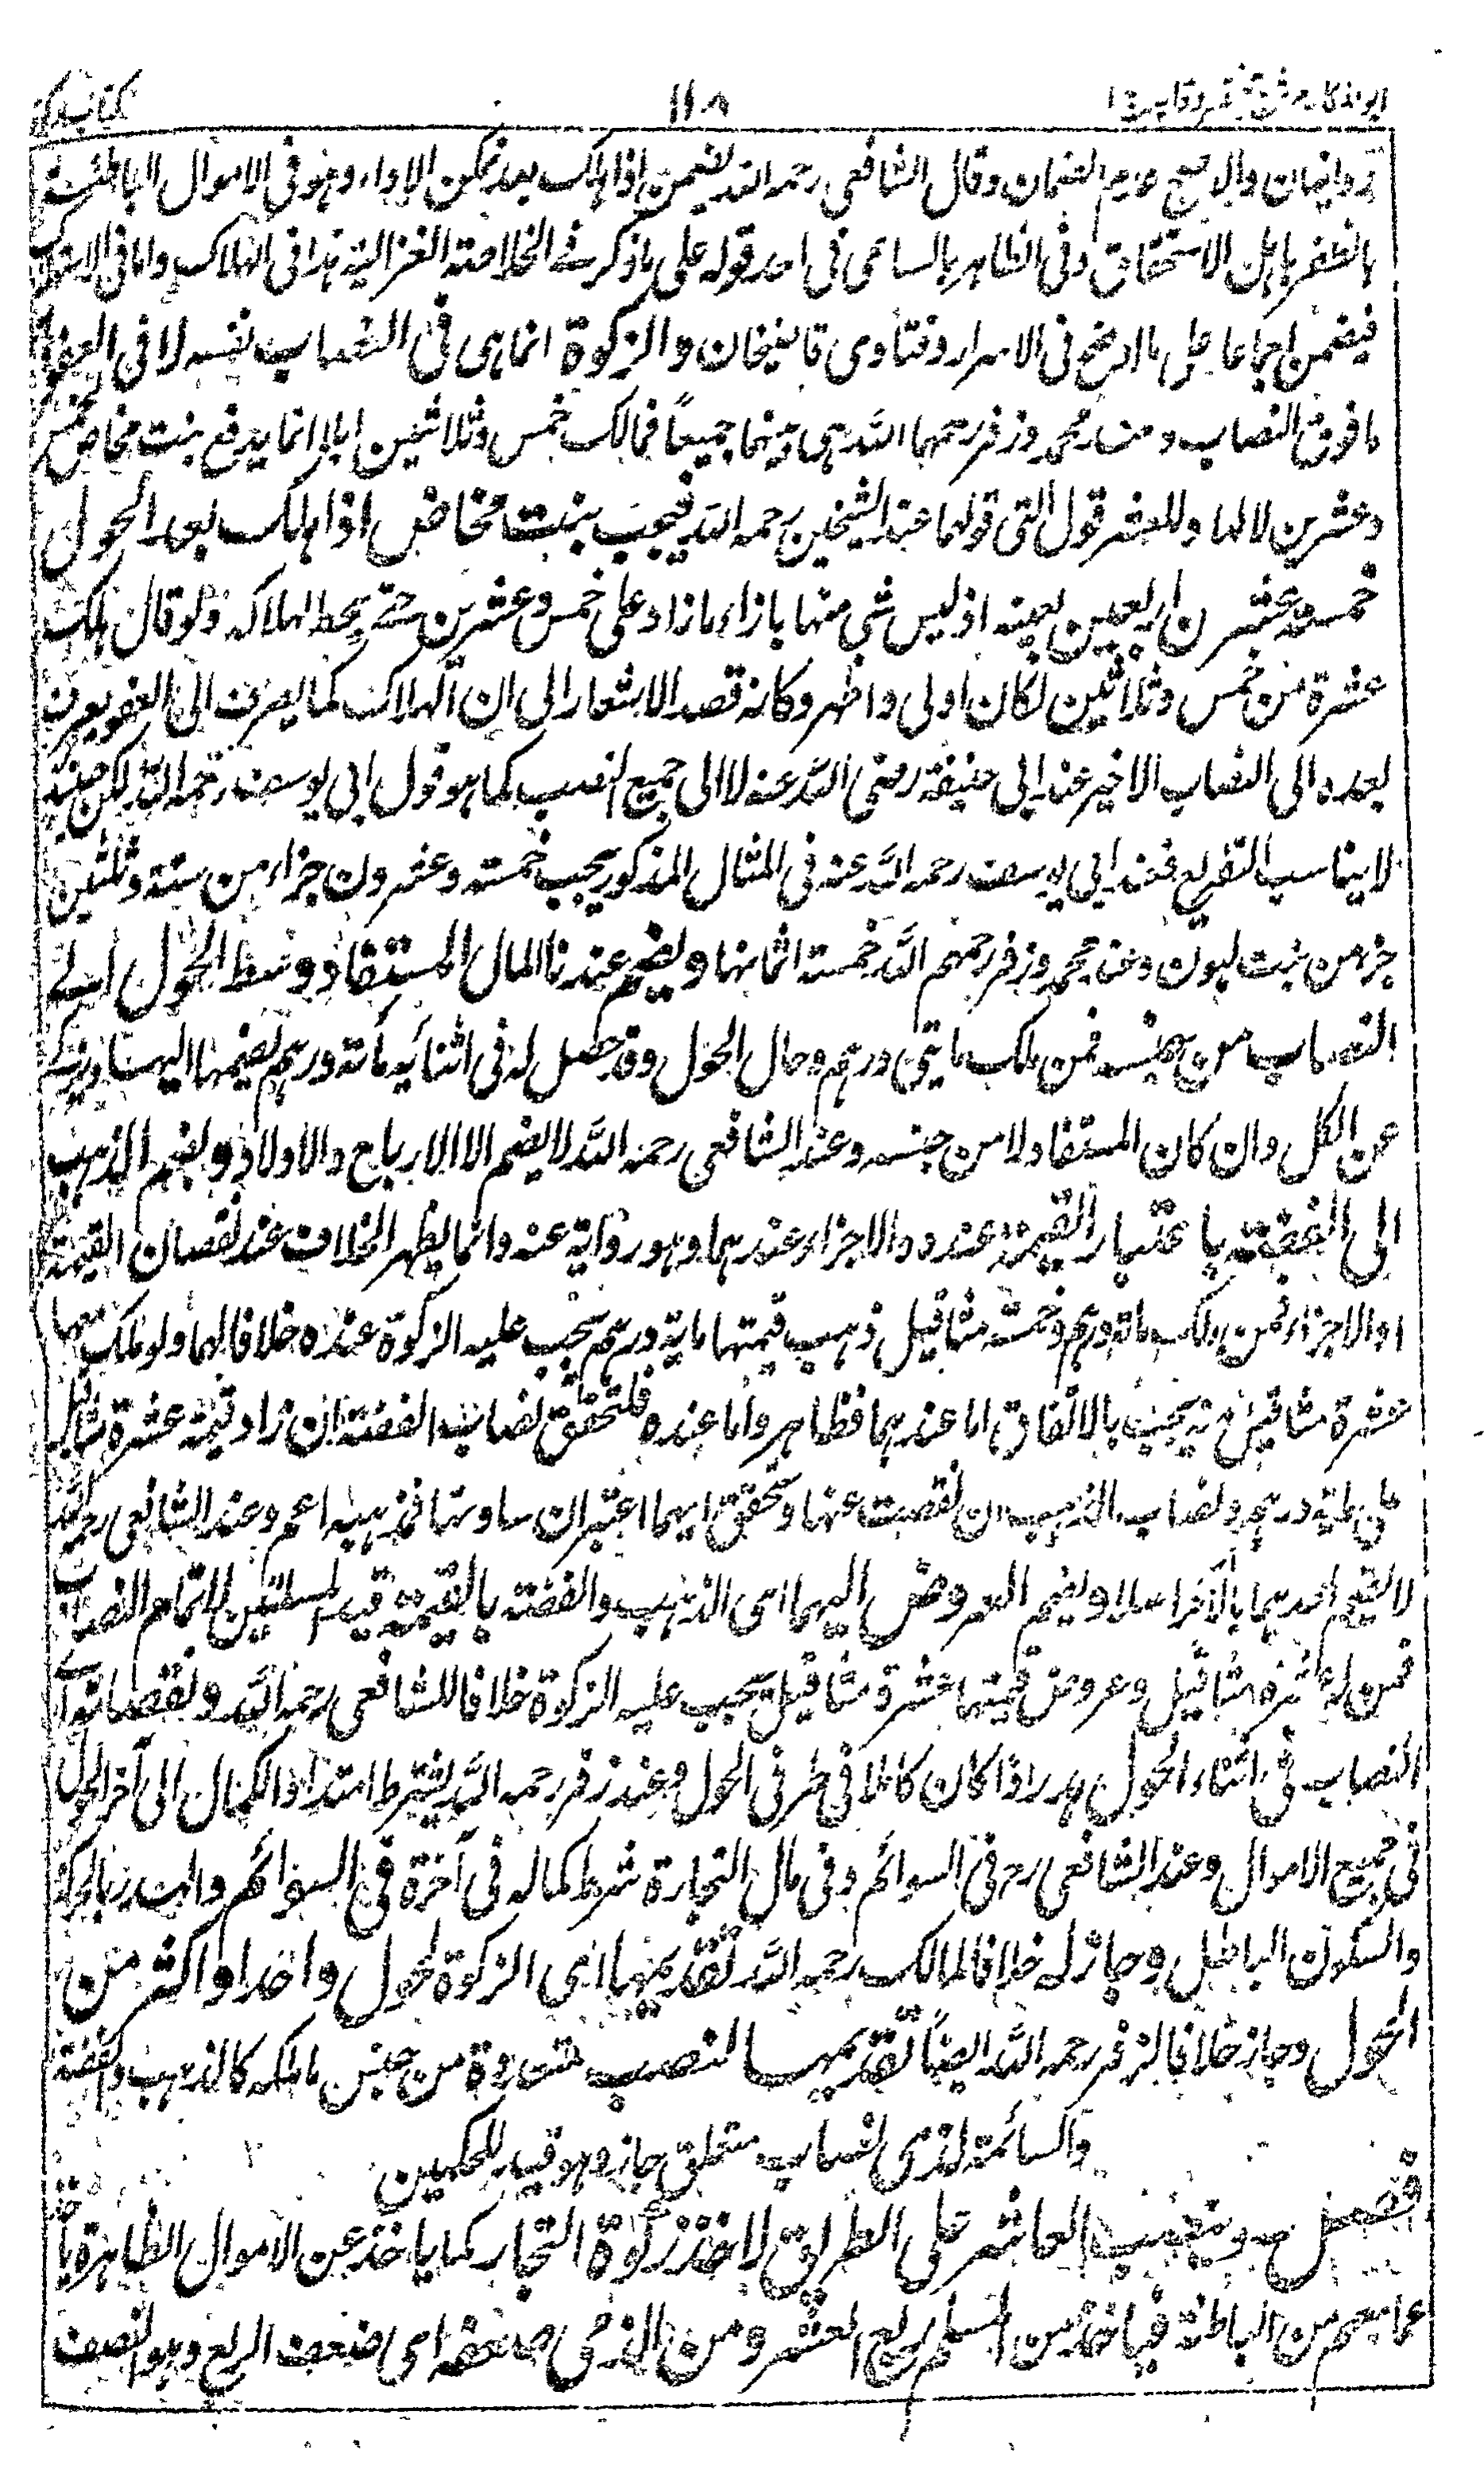 ابو المكارم شرح مختصر وقايه ١١٨ كتاب الزكوة
روايتان والاصح عدم الضمان وقال الشافعى رحمه الله يضمن اذا هلك بعد تمكن الاداء وهو فى الاموال الباطنة
بالظفر باهل الاستحقاق وفى الظاهر بالساعى فى احد قوليه على ما ذكر فى الخلاصة الغزالية هذا فى الهلاك واما فى الاستهلاك
فيضمن اجماعا على ما اوضح فى الاسرار وفتاوى قاضيخان والزكوة انما هى فى النصاب نفسه لا فى العفو
ما فوق النصاب وعند محمد وزفر رحمهما الله هى فيهما جميعاً فمالك خمس وثلاثين ابلا انما يدفع بنت مخاض لخمس
وعشرين لا لها وللعفو قول التى قولها عند الشيخين رحمه الله فيجب بنت مخاض اذا هلك بعد الحول
خمسة عشر من اربعين بعينه اذ ليس شى منها بازاء ما زاد على خمس وعشرين حتى يحط لهلاكه ولو قال هلك
عشرة من خمس وثلاثين لكان اولى واظهر وكانه قصد الاشعار الى ان الهلاك كما يصرف الى العفو يصرف
بعده الى النصاب الاخير عند ابى حنيفة رضى الله عنه لا الى جميع النصب كما هو قول ابى يوسف رحمه الله لكن حينئذ
لا يناسب التفريع فعند ابى يوسف رحمه الله عنه فى المثال المذكور يجب خمسة وعشرون جزاء من ستة وثلثين
جزء من بنت لبون وعند محمد وزفر رحمهم الله خمسة اثمانها ويضم عندنا المال المستفاد وسط الحول الى
النصاب من جنسه فمن ملك مايتى درهم وحال الحول وقد حصل له فى اثنائه مائة درهم يضمها اليها ويزكى
عن الكل وان كان المستفاد لا من جنسه وعند الشافعى رحمه الله لا يضم الا الارباح والاولاد ويضم الذهب
الى الفضة باعتبار القيمة عنده والاجزاء عندهما وهو رواية عنه وانما يظهر الخلاف عند نقصان القيمة
او الاجزاء فمن ملك مائة درهم وخمسة مثاقيل ذهب قيمتها ماية درهم يجب عليه الزكوة عنده خلافا لهما ولو ملك منها
عشرة مثاقيل منه يجب بالاتفاق اما عندهما فظاهر واما عنده فلتحقق نصاب الفضة ان زاد قيمة عشرة مثاقيل
على ماية درهم ونصاب الذهب ان نقصت عنها وتحقق ايهما اعتبر ان ساوتها فمذهبه اعم وعند الشافعى رحمه الله
لا يضم احدهما بالآخر اصلا ويضم العروض اليهما اى الذهب والفضة بالقيمة قيد المسئلتين لاتمام النصاب
فمن له عشرة مثاقيل وعروض قيمتها عشرة مثاقيل يجب عليه الزكوة خلافا للشافعى رحمه الله ونقصانه اى
النصاب فى اثناء الحول هدر اذا كان كاملا فى طرفى الحول وعند زفر رحمه الله يشترط امتداد الكمال الى آخر الحول
فى جميع الاموال وعند الشافعى رح فى السوائم وفى مال التجارة شرط كماله فى آخرة فى السوائم والهدر بالحركة
والسكون الباطل وجاز له خلافا لمالك رحمه الله تقديمها اى الزكوة لحول واحد او اكثر من
الحول وجاز خلافا لزفر رحمه الله ايضاً تقديمها لنصب متعددة من جنس ما ملكه كالذهب والفضة
والسائمة لذى نصاب متعلق جاز وهو قيد للحكمين
فصل وينصب العاشر على الطريق لاخذ زكوة التجار كما ياخذ عن الاموال الظاهرة ياخذ
عما معهم من الباطنة فياخذ من المسلم ربع العشر ومن الذمى ضعفه اى ضعف الربع وهو نصف